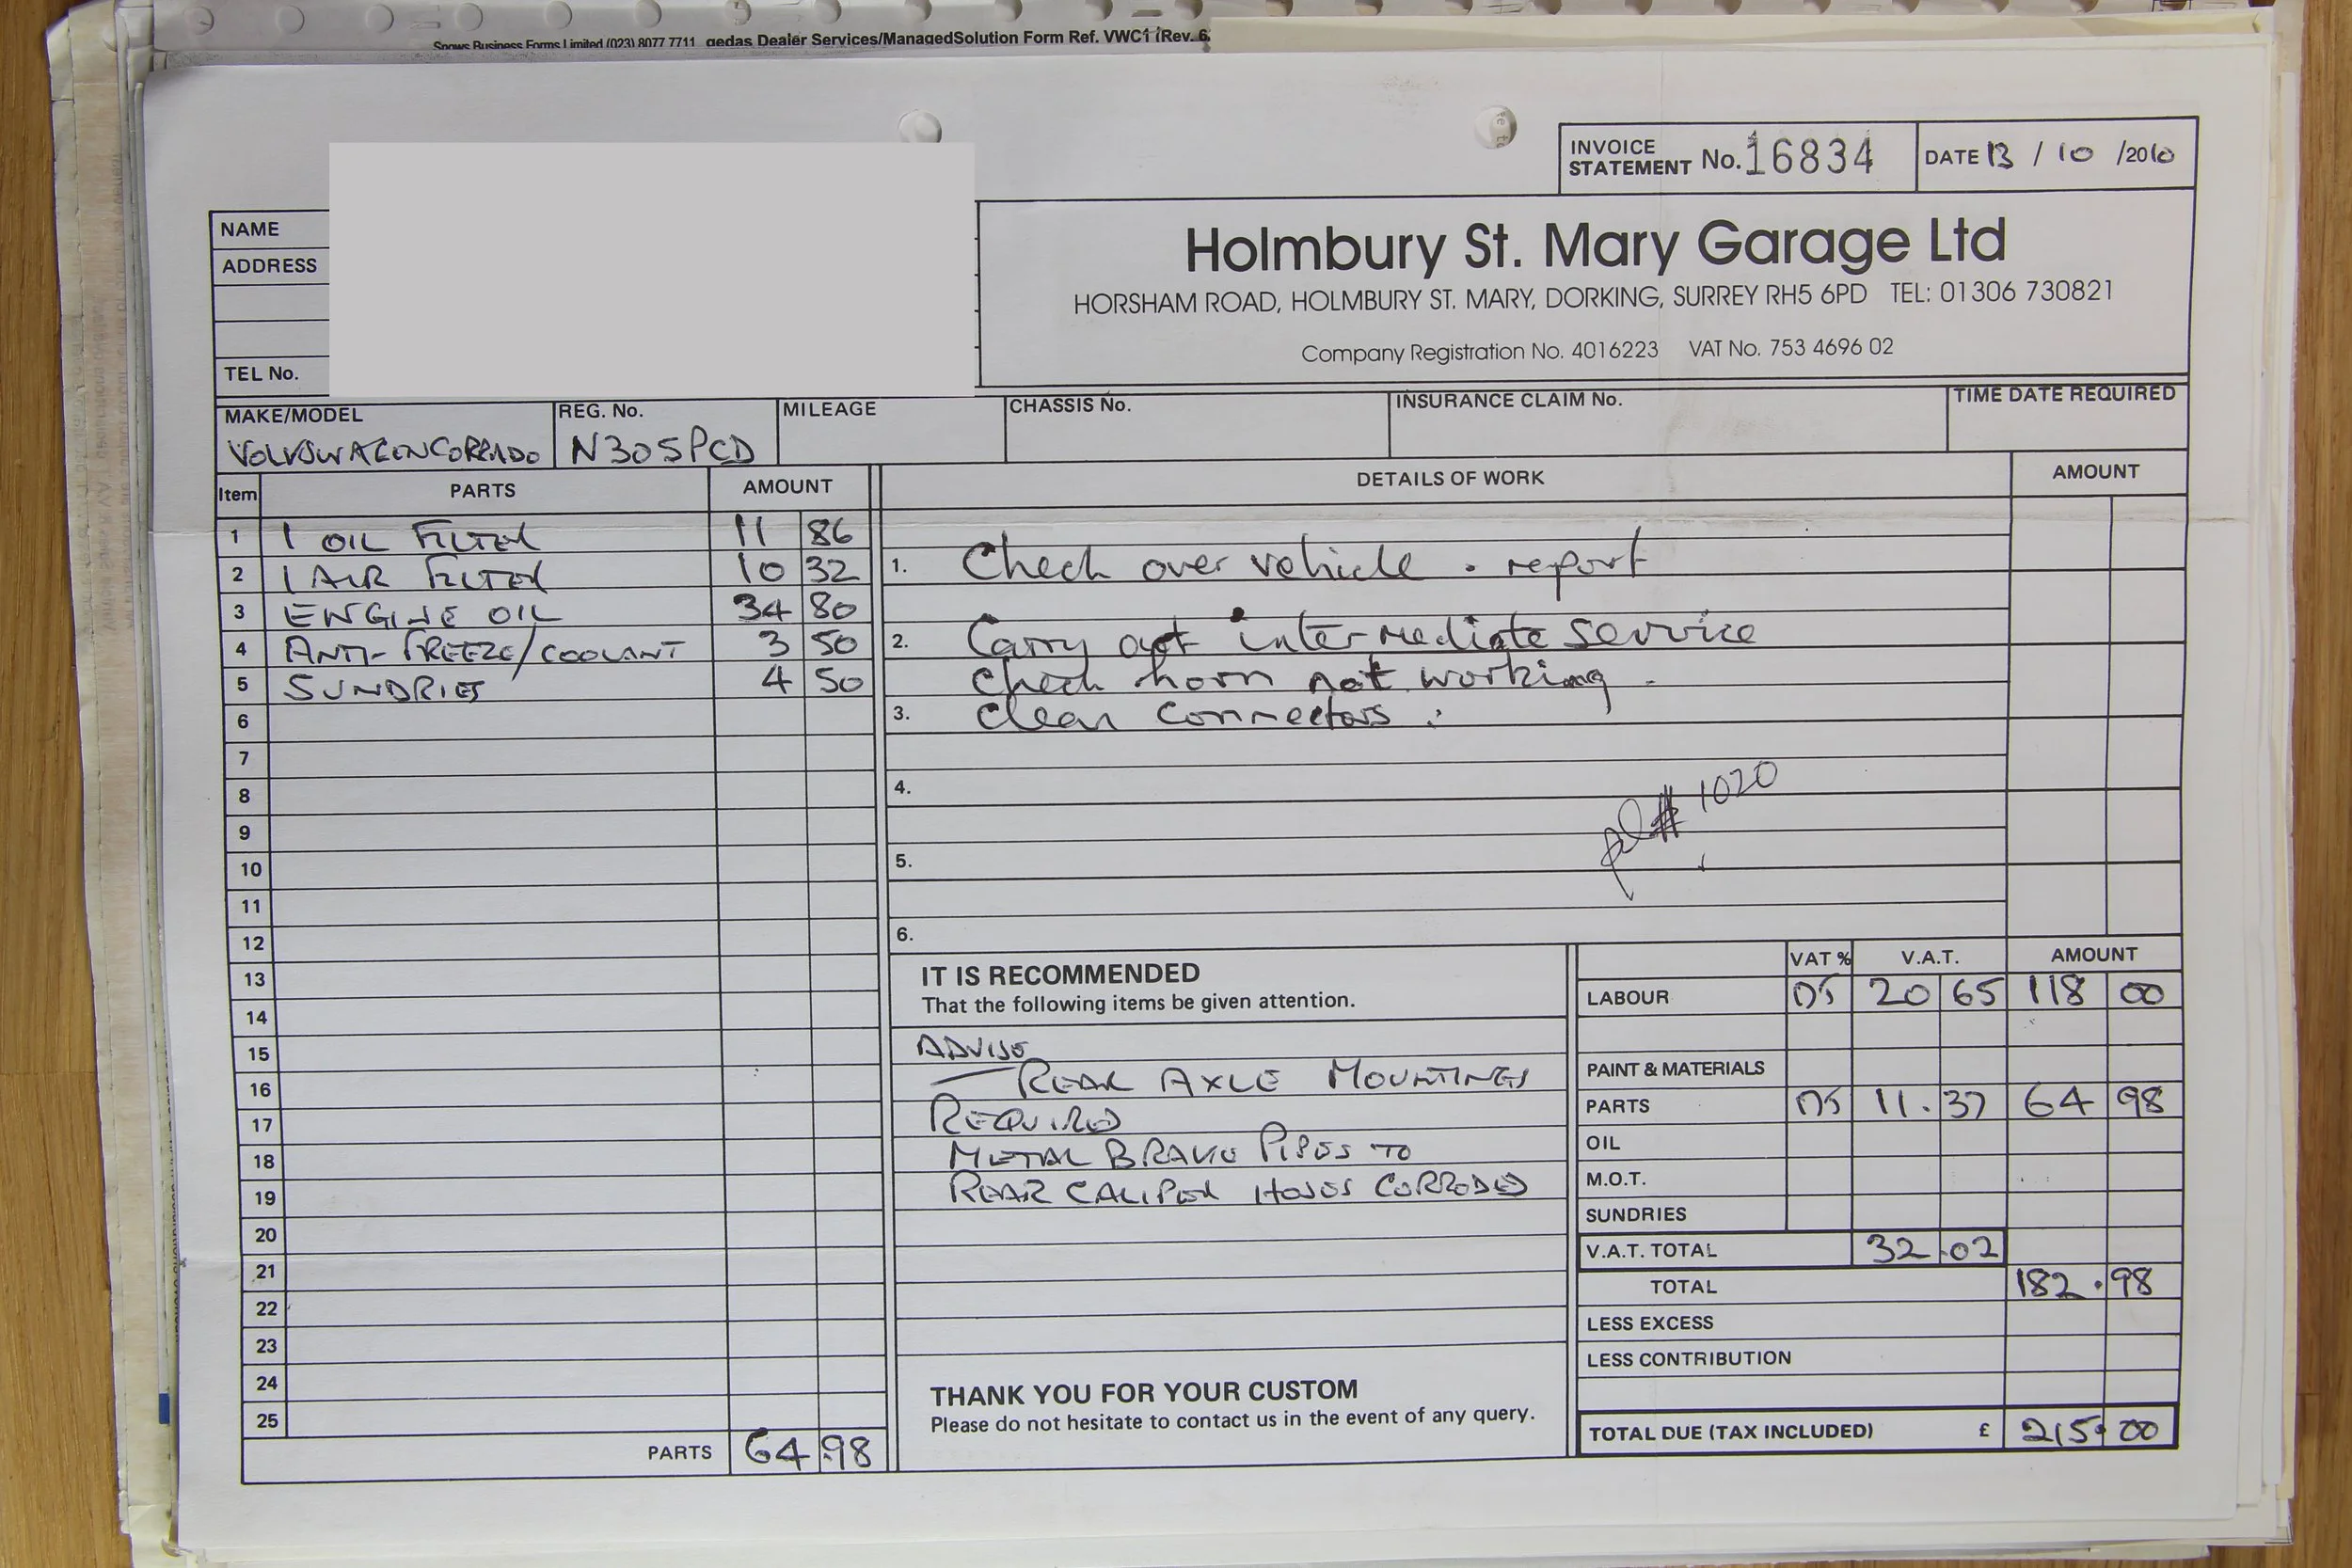 Snows Business Forms Limited (023) 8077 7711 gedas Dealer Services/ManagedSolution Form Ref. VWC1 (Rev. 6
INVOICE STATEMENT No. 16834 DATE 13 / 10 /2010
NAME
ADDRESS
TEL No.
Holmbury St. Mary Garage Ltd
HORSHAM ROAD, HOLMBURY ST. MARY, DORKING, SURREY RH5 6PD TEL: 01306 730821
Company Registration No. 4016223 VAT No. 753 4696 02
MAKE/MODEL REG. No. MILEAGE CHASSIS No. INSURANCE CLAIM No. TIME DATE REQUIRED
VOLKSWAGEN CORRADO N305PCD
Item PARTS AMOUNT
1 1 OIL FILTER 11 86
2 1 AIR FILTER 10 32
3 ENGINE OIL 34 80
4 ANTI-FREEZE/COOLANT 3 50
5 SUNDRIES 4 50
6
7
8
9
10
11
12
13
14
15
16
17
18
19
20
21
22
23
24
25
PARTS 64.98
DETAILS OF WORK AMOUNT
1. Check over vehicle . report
2. Carry out intermediate service
Check horn not working.
3. clean connectors.
4.
# 1020
5.
6.
IT IS RECOMMENDED
That the following items be given attention.
ADVISE
— REAR AXLE MOUNTINGS
REQUIRED
METAL BRAKE PIPES TO
REAR CALIPER HOSES CORRODED
THANK YOU FOR YOUR CUSTOM
Please do not hesitate to contact us in the event of any query.
VAT % V.A.T. AMOUNT
LABOUR 20 65 118 00
PAINT & MATERIALS
PARTS 11.37 64 98
OIL
M.O.T.
SUNDRIES
V.A.T. TOTAL 32.02
TOTAL 182.98
LESS EXCESS
LESS CONTRIBUTION
TOTAL DUE (TAX INCLUDED) £ 215.00